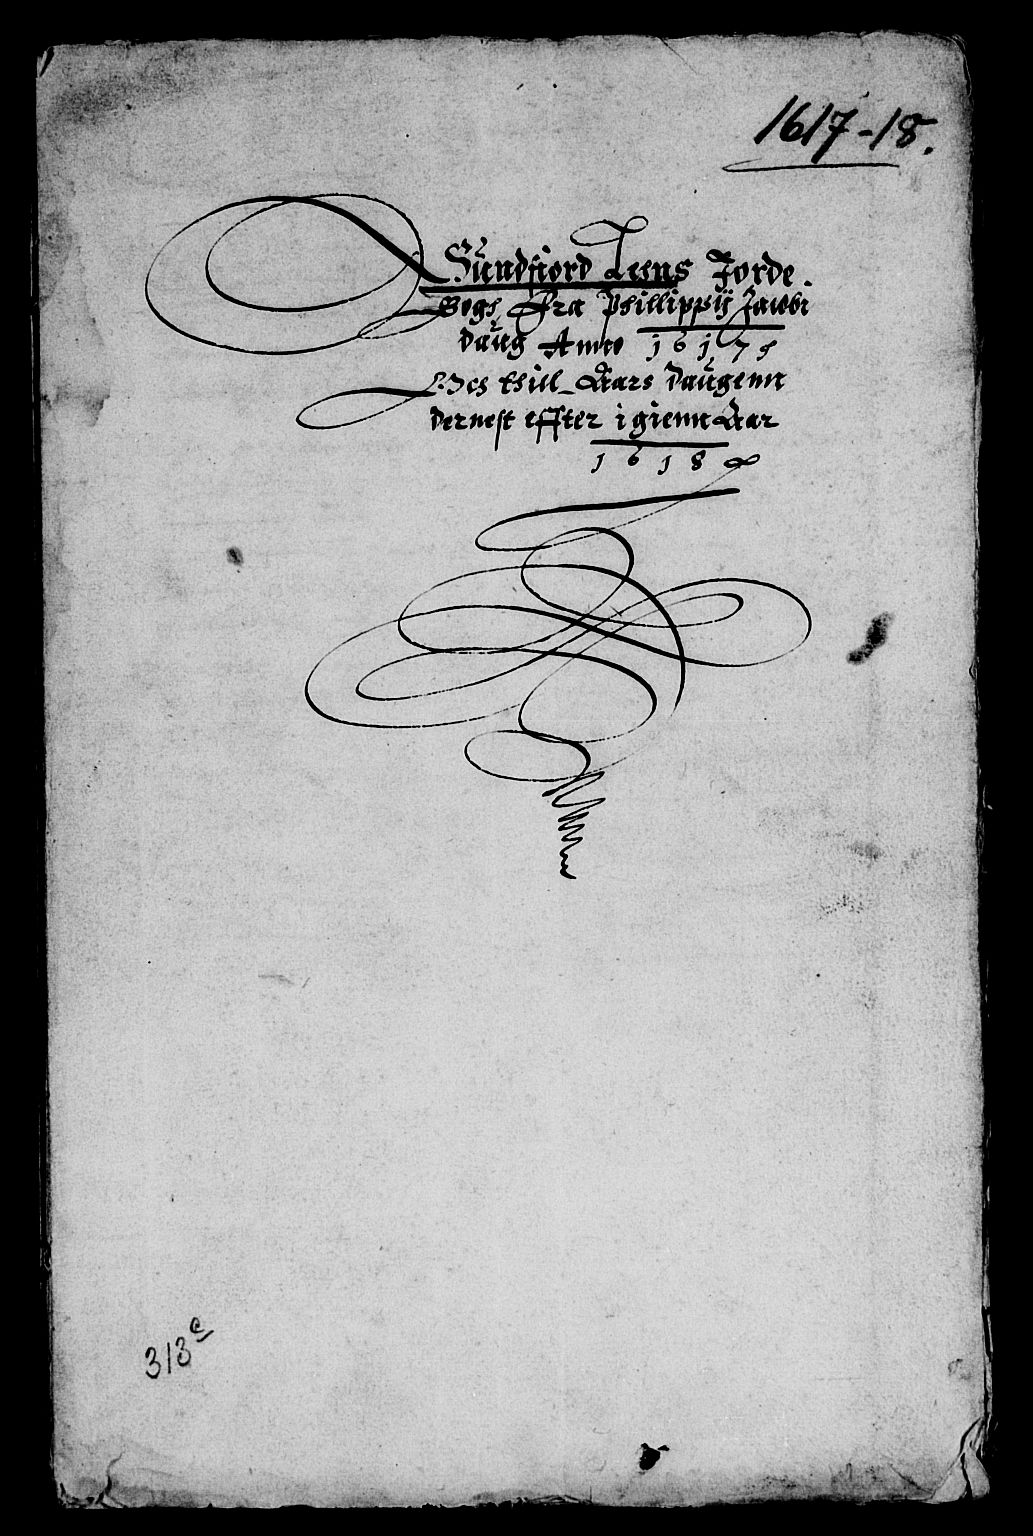 1617-18.
Sundfiord Lens Jorde
Bogh, Fra Phillippij Jacobi
daug Anno 1617
Och thill Aars daugenn
dernest effter igienn Aar
1618
313 c